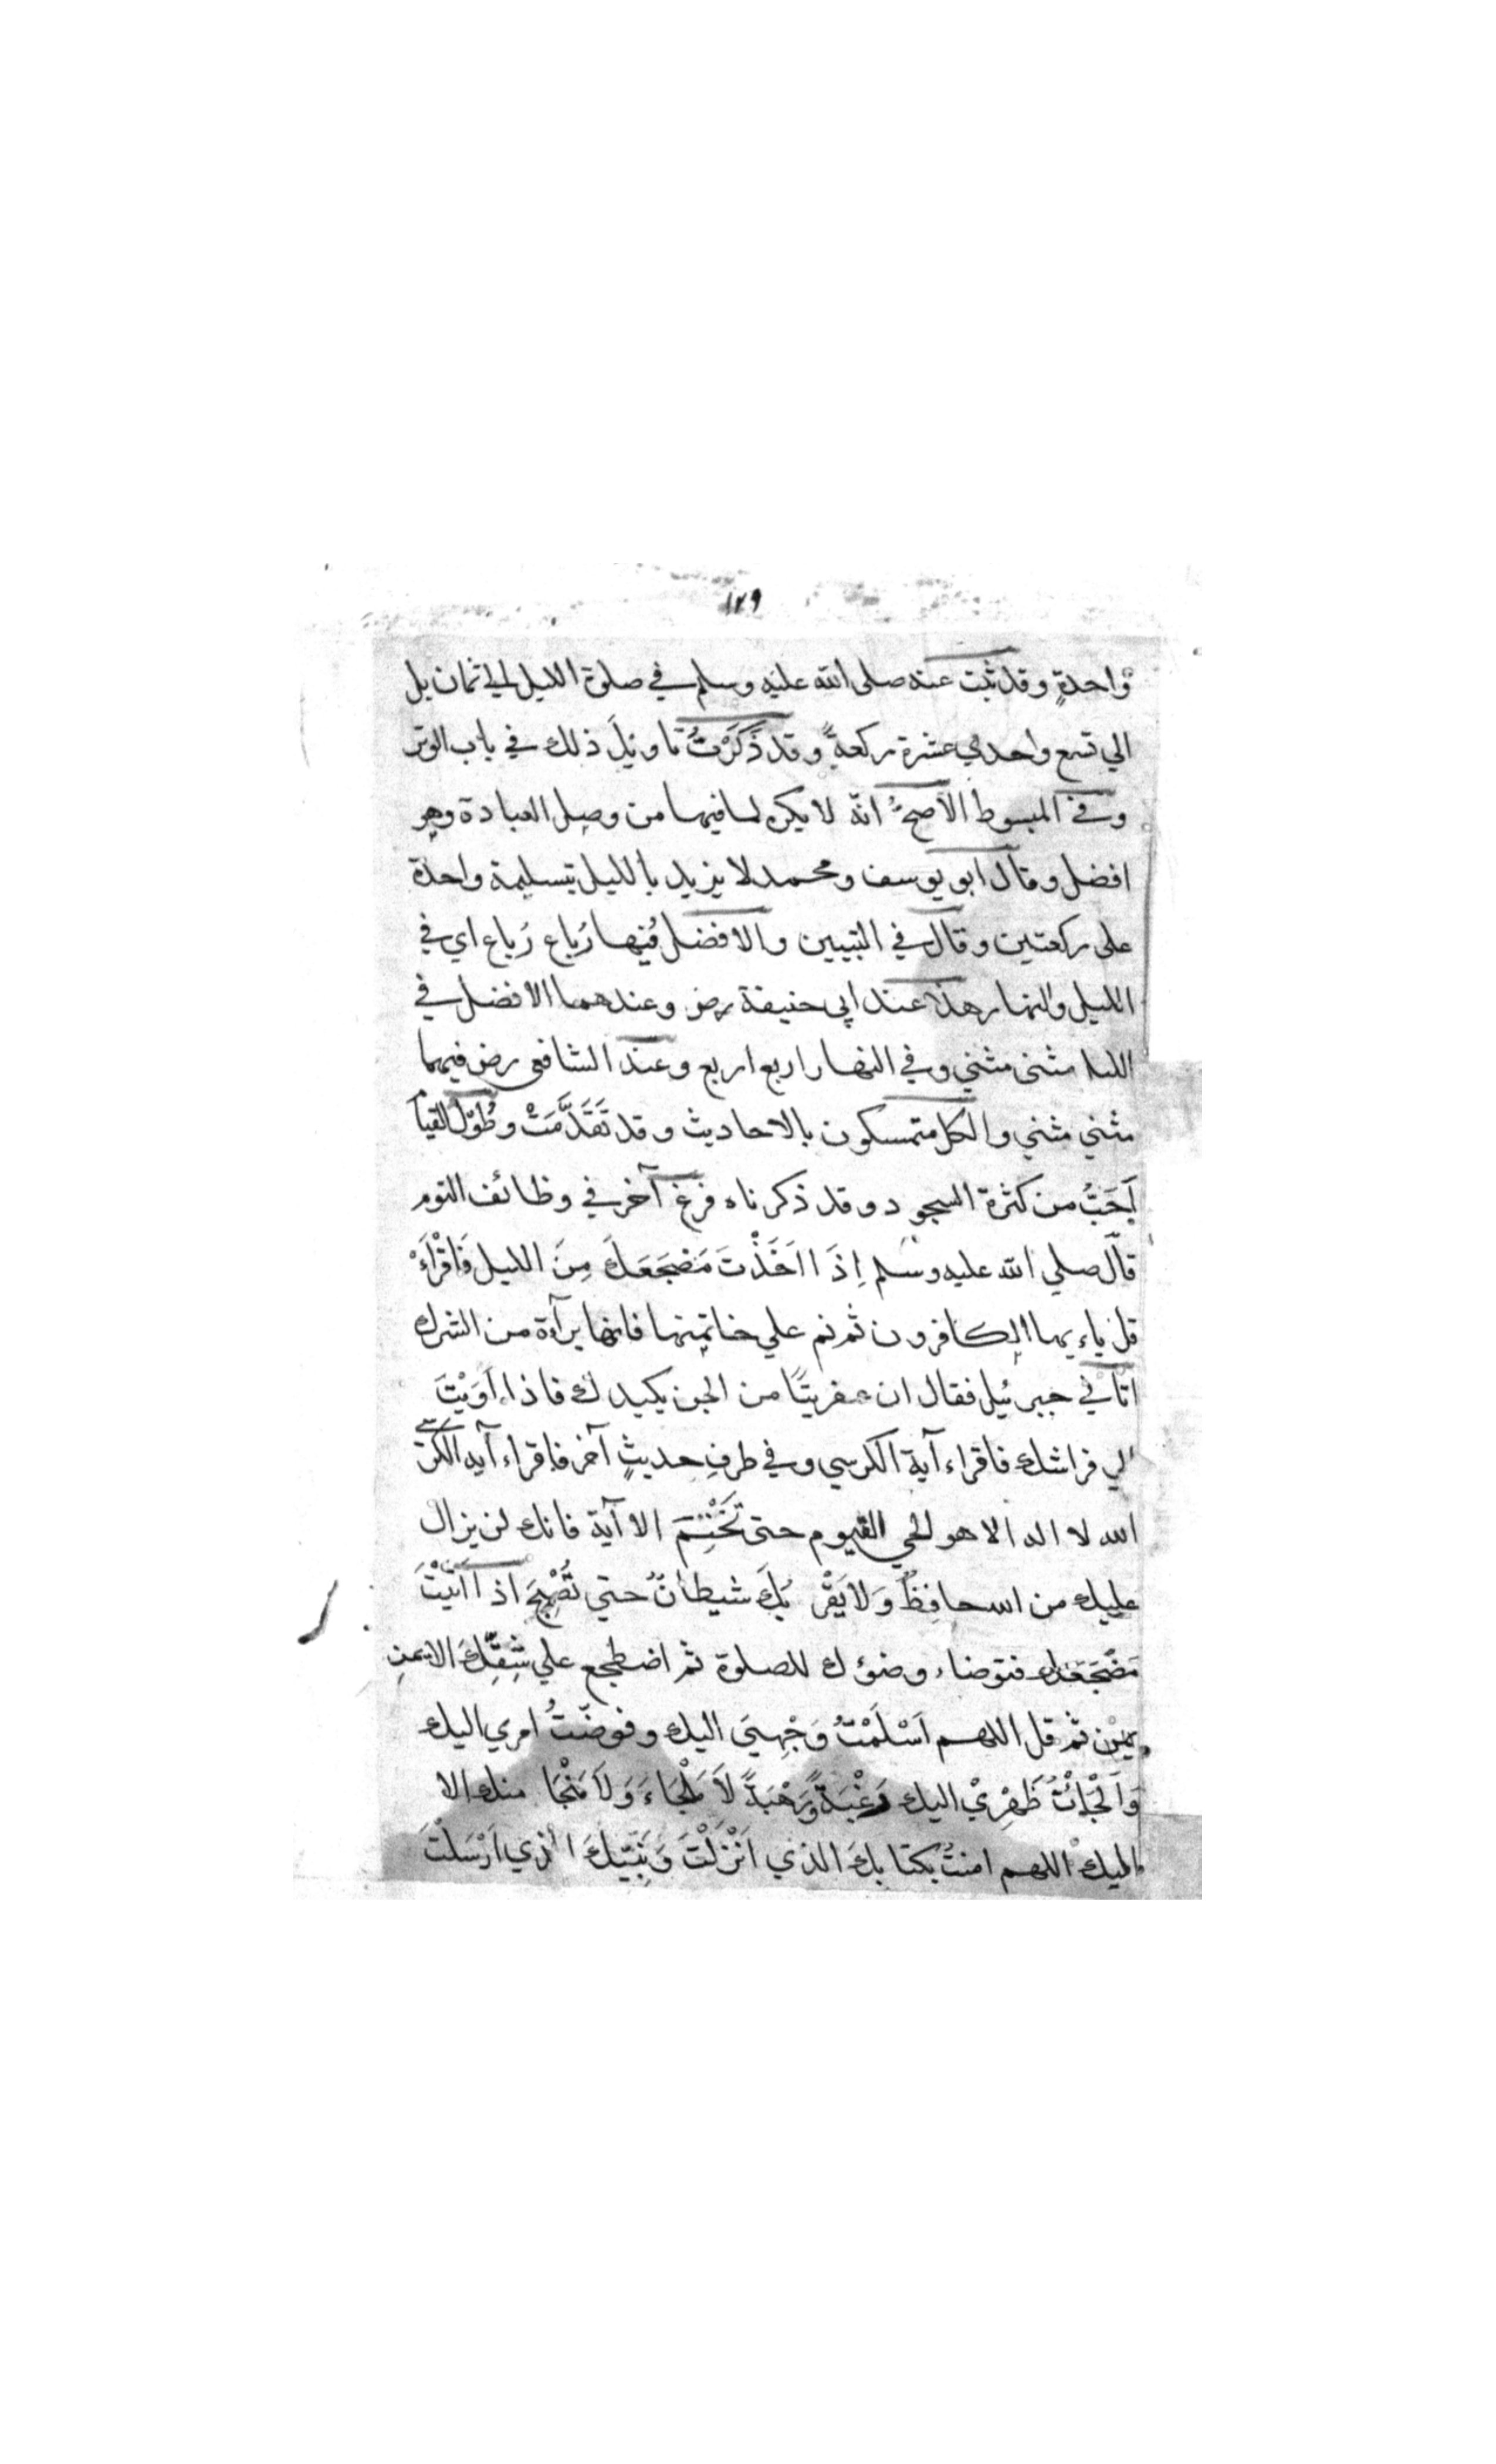 ١٢٩
واحدةٍ وقد ثبت عنه صلى الله عليه وسلم في صلوة الليل الي ثمان بل
الي تسع واحدي عشرة ركعةً وقد ذَكَرْتُ تاويلَ ذلك في باب الوتر
وفي المبسوط الاصحُّ انه لا يكره لما فيها من وصل العبادة وهو
افضل وقال ابو يوسف ومحمد لا يزيد بالليل بتسليمة واحدة
على ركعتين وقال في التبيين والافضل فيها رُباع رُباع اي في
الليل والنهار هذا عند ابي حنيفة رض وعندهما الافضل في
الليل مثنى مثني وفي النهار اربع اربع وعند الشافعى رض فيهما
مثني مثني والكل متمسكون بالاحاديث وقد تَقَدَّمَتْ وطُوْل القيام
اَحَبُّ من كثرة السجود وقد ذكرناه فرع آخر في وظائف النوم
قال صلي الله عليه وسلم اِذَا اخَذْتَ مَضجَعَكَ مِنَ الليل فَاقْرَاَءْ
قل ياءيها الكافرون ثم نم علي خاتمتها فانها برآءة من الشرك
اتاني جبرئيل فقال ان عفريتًا من الجن يكيدك فاذا اَوَيْتَ
الي فراشك فاقراء آية الكرسي وفي طرفِ حديثٍ آخر فاقراء آيه الكرسي
الله لا اله الا هو الحي القيوم حتى تَخْتِمَ الاآية فانك لن يزال
عليك من الله حافِظٌ وَلا يَقْرَبُكَ شيطانٌ حتي تُصْبِحَ اذا اَتَيْتَ
مَضْجَعَكَ فتوضاء وضوُك للصلوة ثم اضطجع علي شِقِّكَ الايمنِ
يمين ثم قل اللهم اَسْلَمْتُ وَجْهِيَ اليك وفوضْتُ امري اليك
وَاَلْجَائْتُ ظَهْرِيْ اليك رَغْبَةً وَرَهْبَةً لاَ مَلْجَاءَ وَلاَ مَنْجَا منك الا
اليك اللهم امنتُ بكتابكَ الذي اَنْزَلْتَ وَنَبِيِّكَ الذي اَرْسَلْتَ